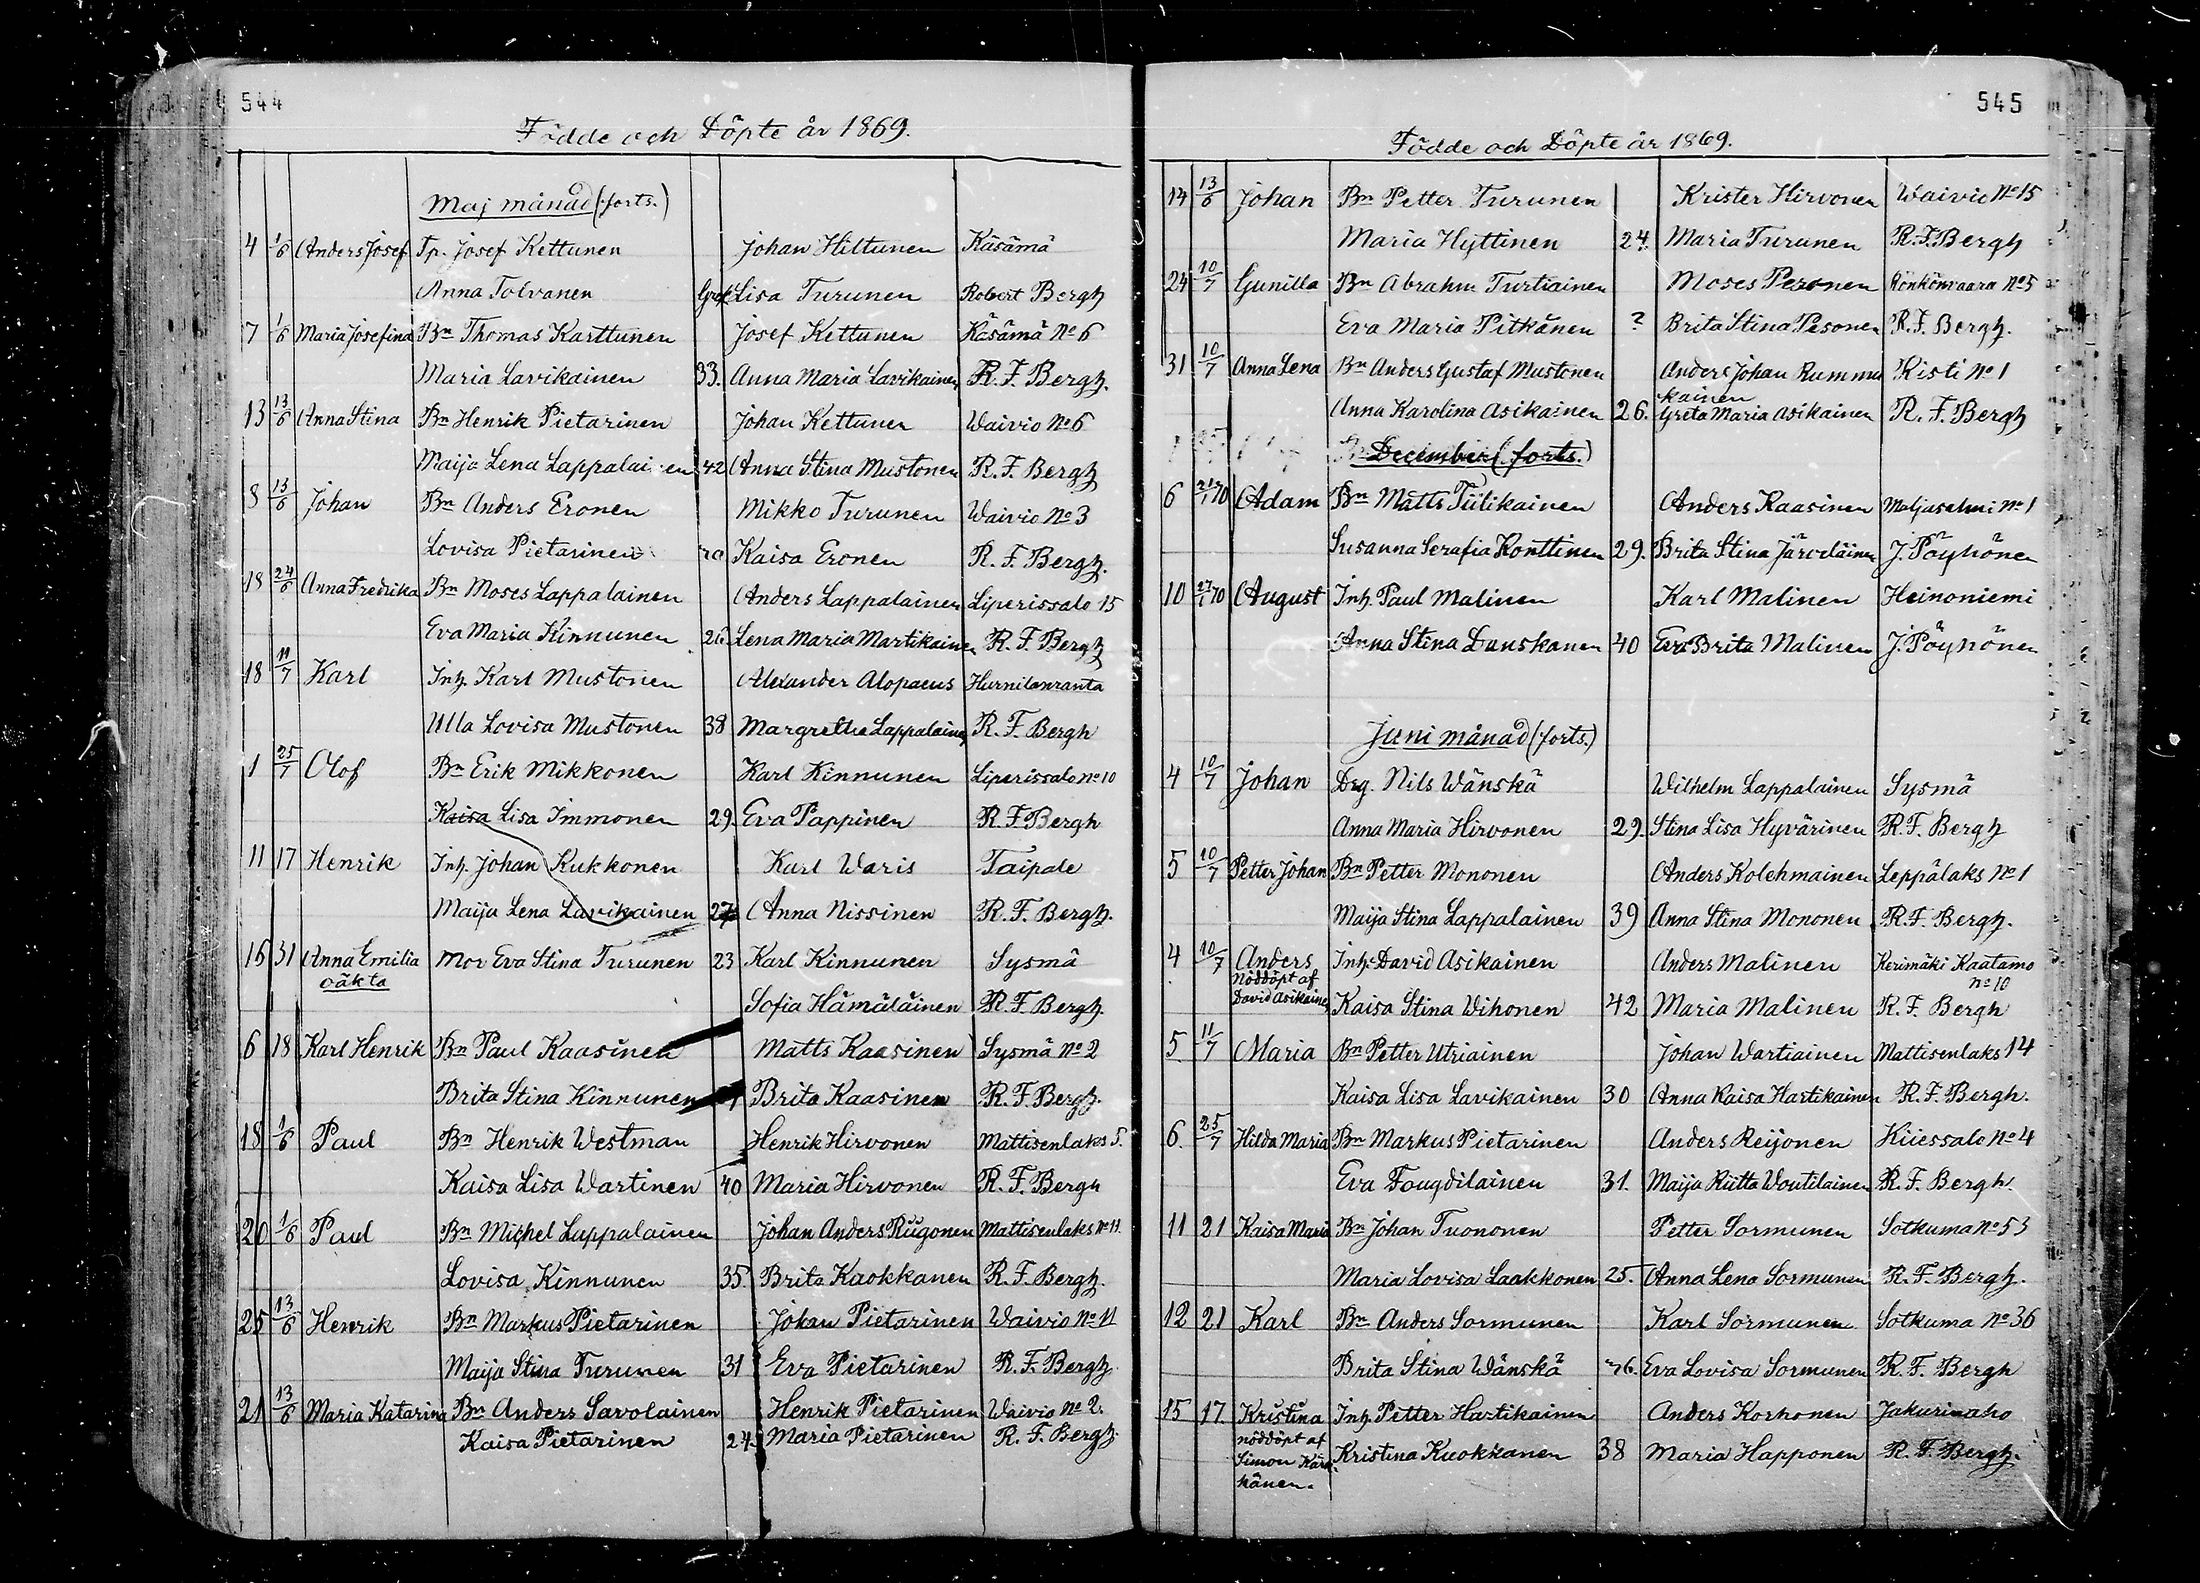 544
Födde och Döpte år 1869.
Maj månad (forts.)
4 1/6 Anders Josef Tp. Josef Kettunen Johan Hiltunen Käsämä
Anna Tolvanen Grek Lisa Turunen Robert Bergh
7 1/6 Maria Josefina Bn Thomas Karttunen Josef Kettunen Käsämä No 6
Maria Lavikainen 33. Anna Maria Lavikainen R. F. Bergh.
13 13/6 Anna Stina Bn Henrik Pietarinen Johan Kettunen Waivio No 6
Maija Lena Lappalainen 42 Anna Stina Mustonen R. F. Bergh
8 13/6 Johan Bn Anders Eronen Mikko Turunen Waivio No 3
Lovisa Pietarinen Kaisa Eronen R. F. Bergh.
18 24/6 Anna Fredrika Bn Moses Lappalainen Anders Lappalainen Liperissalo 15
Eva Maria Kinnunen 26. Lena Maria Martikainen R. F. Bergh
18 11/7 Karl Inh. Karl Mustonen Alexander Alopaeus Hurnilanranta
Ulla Lovisa Mustonen 38 Margretha Lappalainen R. F. Bergh
1 25/7 Olof Bn Erik Mikkonen Karl Kinnunen Liperissalo No 10
Kaisa Lisa Immonen 29. Eva Pappinen R. F. Bergh
11 17 Henrik Inh. Johan Kukkonen Karl Waris Taipale
Maija Lena Lavikainen 27 Anna Nissinen R. F. Bergh.
16 31 Anna Emilia Mor Eva Stina Turunen 23 Karl Kinnunen Sysmä
oäkta
Sofia Hämäläinen R. F. Bergh.
6 18 Karl Henrik Bn Paul Kaasinen Matts Kaasinen Sysmä No 2
Brita Stina Kinnunen Brita Kaasinen R. F. Bergh.
18 1/6 Paul Bn Henrik Westman Henrik Hirvonen Mattisenlaks 5.
Kaisa Lisa Wartinen 40 Maria Hirvonen R. F. Bergh
20 1/6 Paul Bn Michel Lappalainen Johan Anders Riigonen Mattisenlaks No 11.
Lovisa Kinnunen 35. Brita Kaokkanen R. F. Bergh.
25 13/6 Henrik Bn Markus Pietarinen Johan Pietarinen Waivio No 11
Maija Stina Turunen 31 Eva Pietarinen R. F. Bergh
21 13/6 Maria Katarina Bn Anders Savolainen Henrik Pietarinen Waivio No 2.
Kaisa Pietarinen 24. Maria Pietarinen R. F. Bergh
545
Födde och Döpte år 1869.
14 13/6 Johan Bn Petter Turunen Krister Hirvonen Waivio No 15
Maria Hyttinen 24. Maria Turunen R. F. Bergh
24 10/7 Gunilla Bn Abraham Turtiainen Moses Pesonen Hönkönvaara No 5
Eva Maria Pitkänen ? Brita Stina Pesonen R. F. Bergh.
31 10/7 Anna Lena Bn Anders Gustaf Mustonen Anders Johan Rummu Risti No 1
kainen
Anna Karolina Asikainen 26. Greta Maria Asikainen R. F. Bergh
December (forts.)
6 21/1 70 Adam Bn Matts Tiilikainen Anders Kaasinen Maljasalmi No 1
Susanna Serafia Konttinen 29. Brita Stina Järveläinen J. Pöyhönen
10 27/1 70 August Inh. Paul Malinen Karl Malinen Heinoniemi
Anna Stina Danskanen 40 Eva Brita Malinen J. Pöyhönen
Juni månad (forts.)
4 10/7 Johan Drg. Nils Wänskä Wilhelm Lappalainen Sysmä
Anna Maria Hirvonen 29. Stina Lisa Hyvärinen R. F. Bergh
5 10/7 Petter Johan Bn Petter Mononen Anders Kolehmainen Leppälaks No 1
Maija Stina Lappalainen 39 Anna Stina Mononen R. F. Bergh.
4 10/7 Anders Inh. David Asikainen Anders Malinen Kerimäki Kaatamo
nöddöpt af No 10
David Asikainen Kaisa Stina Wihonen 42 Maria Malinen R. F. Bergh
5 11/7 Maria Bn Petter Utriainen Johan Wartiainen Mattisenlaks 14
Kaisa Lisa Lavikainen 30 Anna Kaisa Hartikainen R. F. Bergh.
6. 25/7 Hilda Maria Bn Markus Pietarinen Anders Reijonen Kiiessalo No 4
Eva Fougdilainen 31. Maija Riitta Woutilainen R. F. Bergh.
11 21 Kaisa Maria Bn Johan Tuononen Petter Sormunen Sotkuma No 53
Maria Lovisa Laakkonen 25. Anna Lena Sormunen R. F. Bergh.
12 21 Karl Bn Anders Sormunen Karl Sormunen Sotkuma No 36
Brita Stina Wänskä 36. Eva Lovisa Sormunen R. F. Bergh
15 17 Kristina Inh. Petter Hartikainen Anders Korhonen Jakurinaho
nöddöpt af
Simon Kärk- Kristina Kuokkanen 38 Maria Happonen R. F. Bergh.
känen.